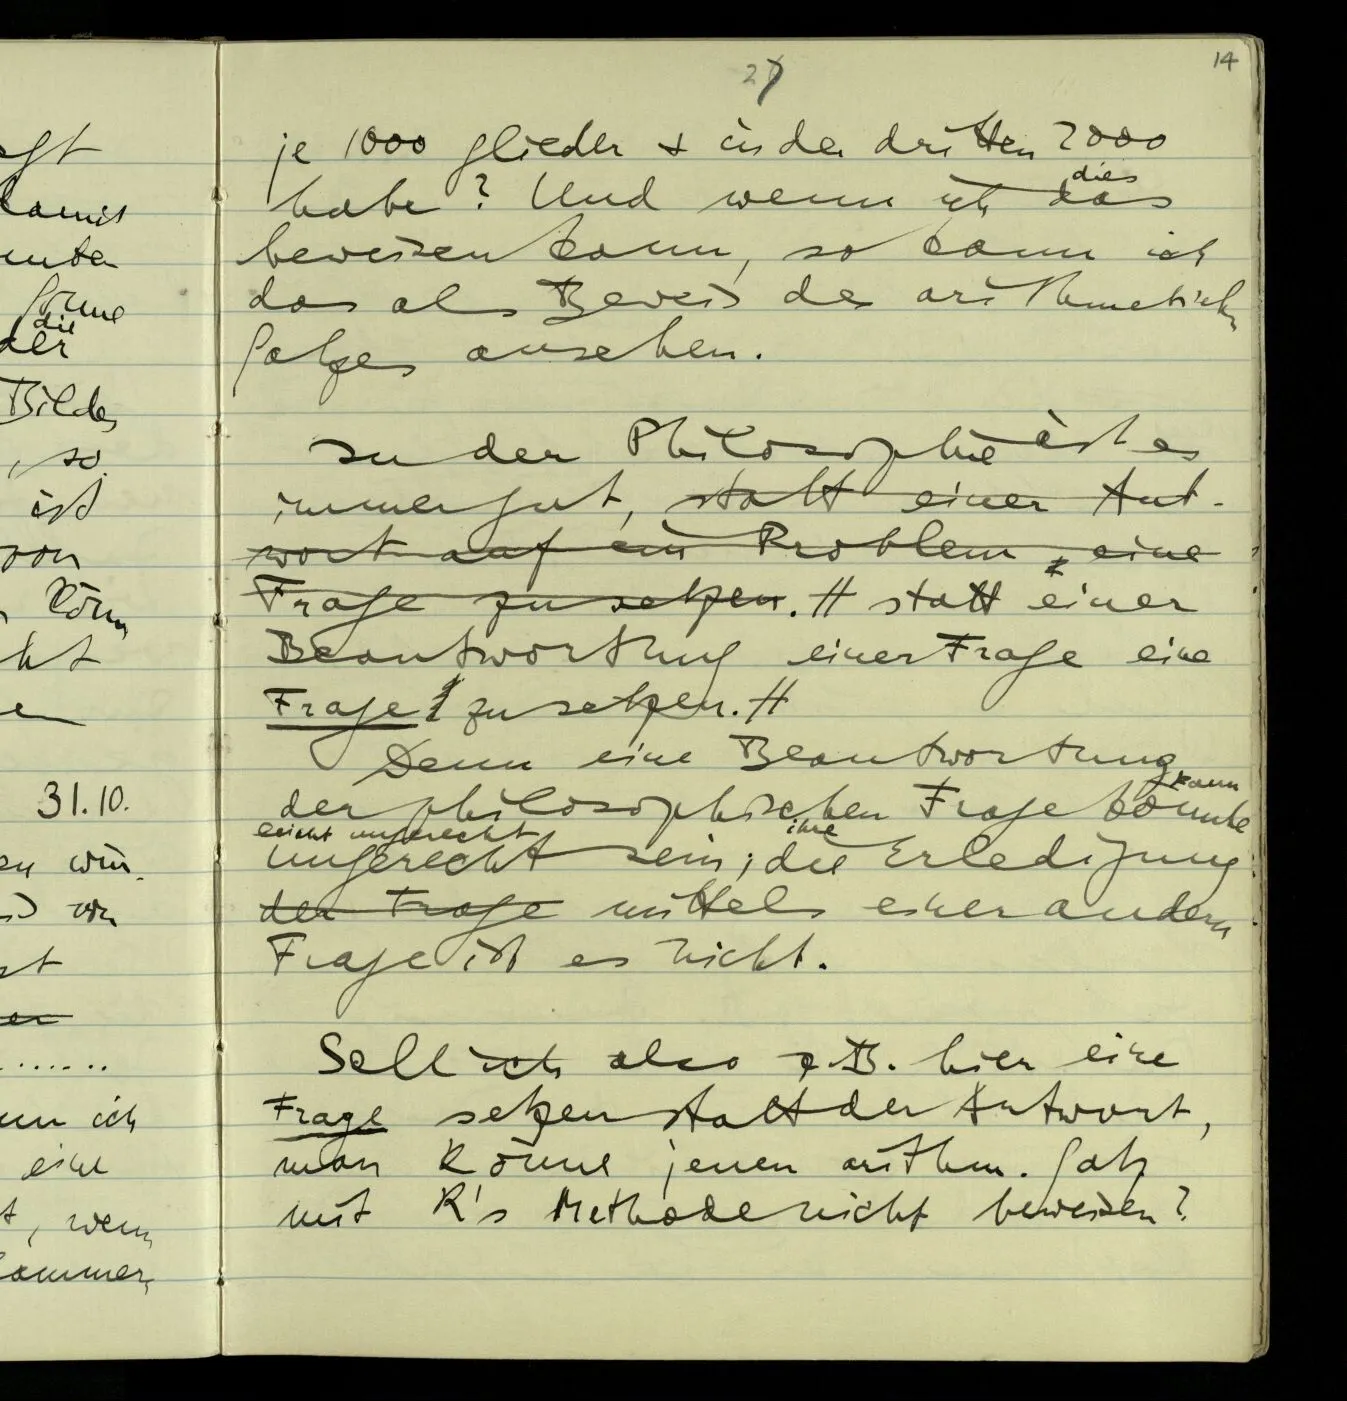 14
27
je 1000 Glieder & in der dritten 2000
habe? Und wenn ich das
dies
beweisen kann, so kann ich
das als Beweis des arithmetischen
Satzes ansehen.
In der Philosophie ist es
immer gut, statt einer Ant-
wort auf ein Problem, eine
Frage zu setzen. // statt einer
Beantwortung einer Frage eine
Frage zu setzen. //
Denn eine Beantwortung
kann
der philosophischen Frage könnte
leicht ungerecht
ihre
ungerecht sein; die Erledigung
der Frage mittels einer andern
Frage ist es nicht.
Soll ich also z.B. hier eine
Frage setzen statt der Antwort,
man könne jenen arithm. Satz
mit R's Methode nicht beweisen?
damit
die
der
Bildes
, so
ist
von
31.10.
von
.......
ich
eine
, wenn